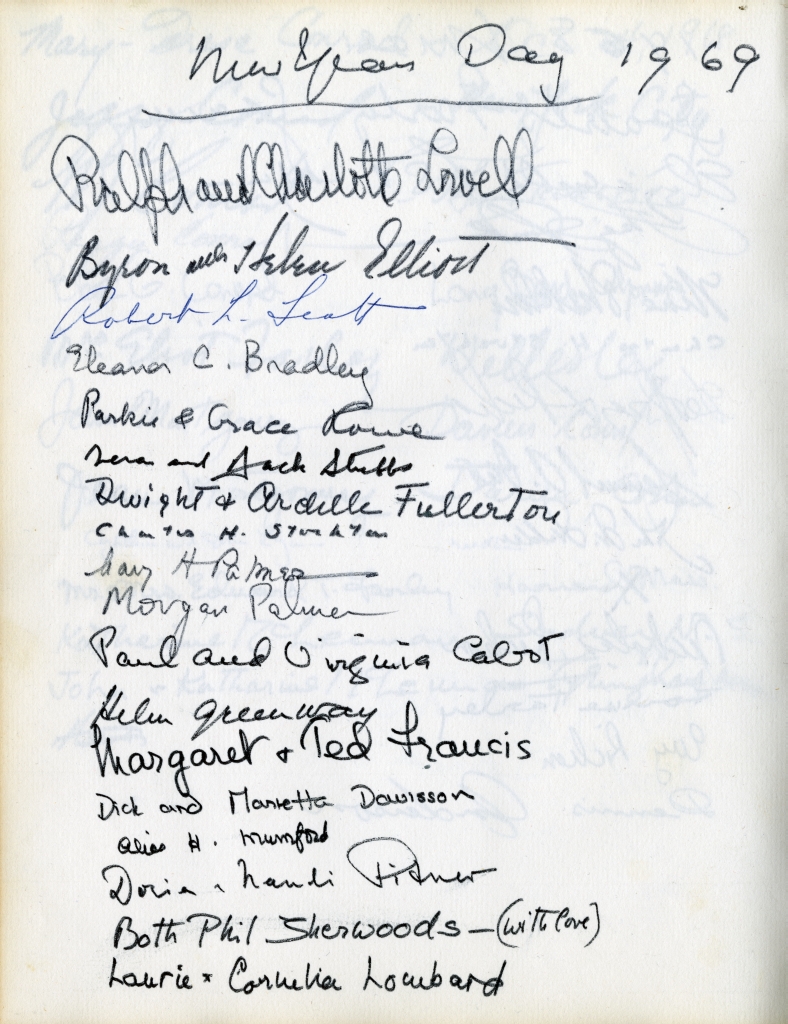 New Years Day 1969
Ralph and Charlotte Lowell
Byron and Helen Elliott
Robert L. Scott
Eleanor C. Bradley
Parkie & Grace Rowe
and Jack Stubbs
Dwight & Ardelle Fullerton
Charles H. Stockton
Mary H Palmer
Morgan Palmer
Paul and Virginia Cabot
Helen Greenway
Margaret & Ted Francis
Dick and Marietta Davisson
Alice H. Mumford
Both Phil Sherwoods - (with love)
Laurie & Cornelia Lombard